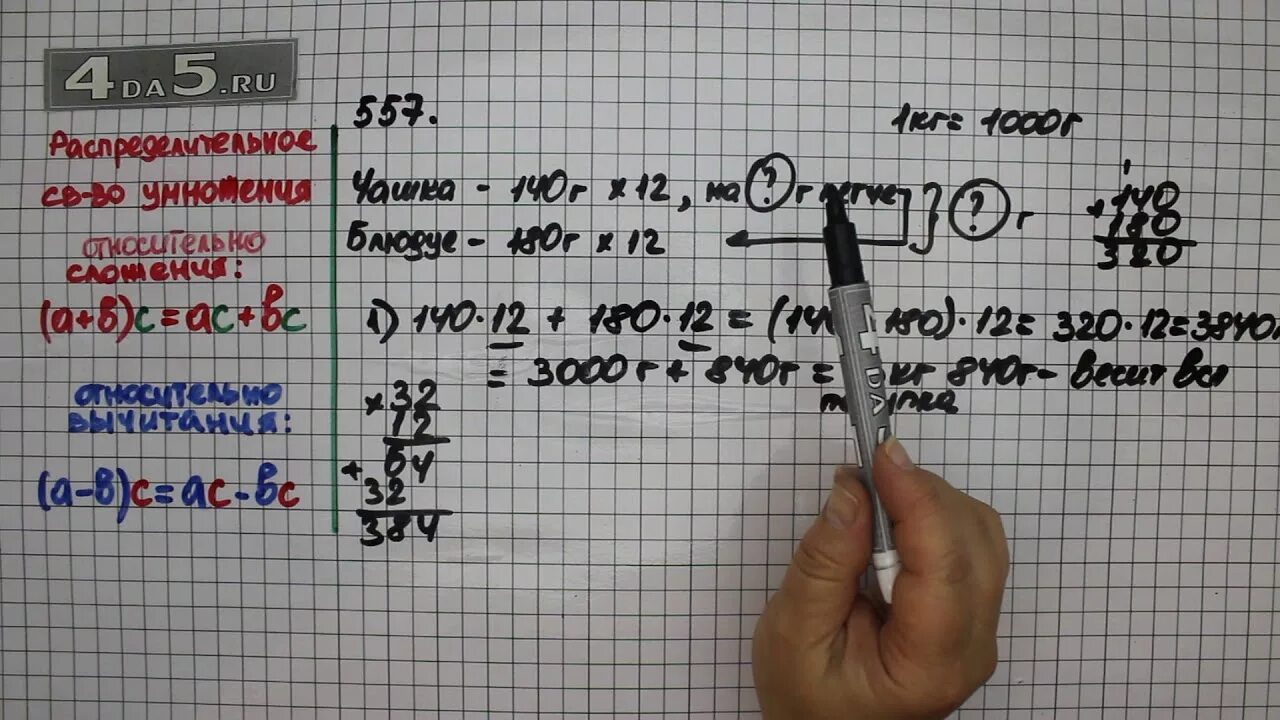 4DA5.RU
557.
1кг = 1000г
Распределительное
св-во умножения
относительно
сложения:
(а+в)с=ас+вс
относительно
вычитания:
(а-в)с=ас-вс
Чашка - 140г х 12, на ? г легче } ? г
Блюдце - 180г х 12
1
+ 140
180
320
1) 140·12 + 180·12 = (14 180)·12 = 320·12=3840
= 3000г + 840г = кг 840г - весит вся
х 32
12
+ 64
32
384
4DA